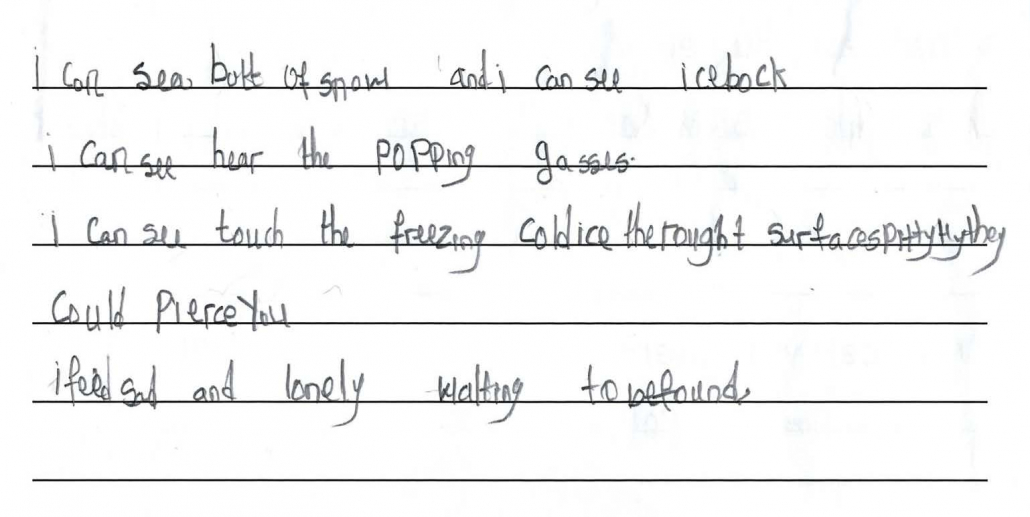 i can sea bolt of snow and i can see icebock
i can see hear the popping gasses.
i can see touch the freezing cold ice the rought surfaces they
could pierce you
i feed sad and lonely waiting to be found.